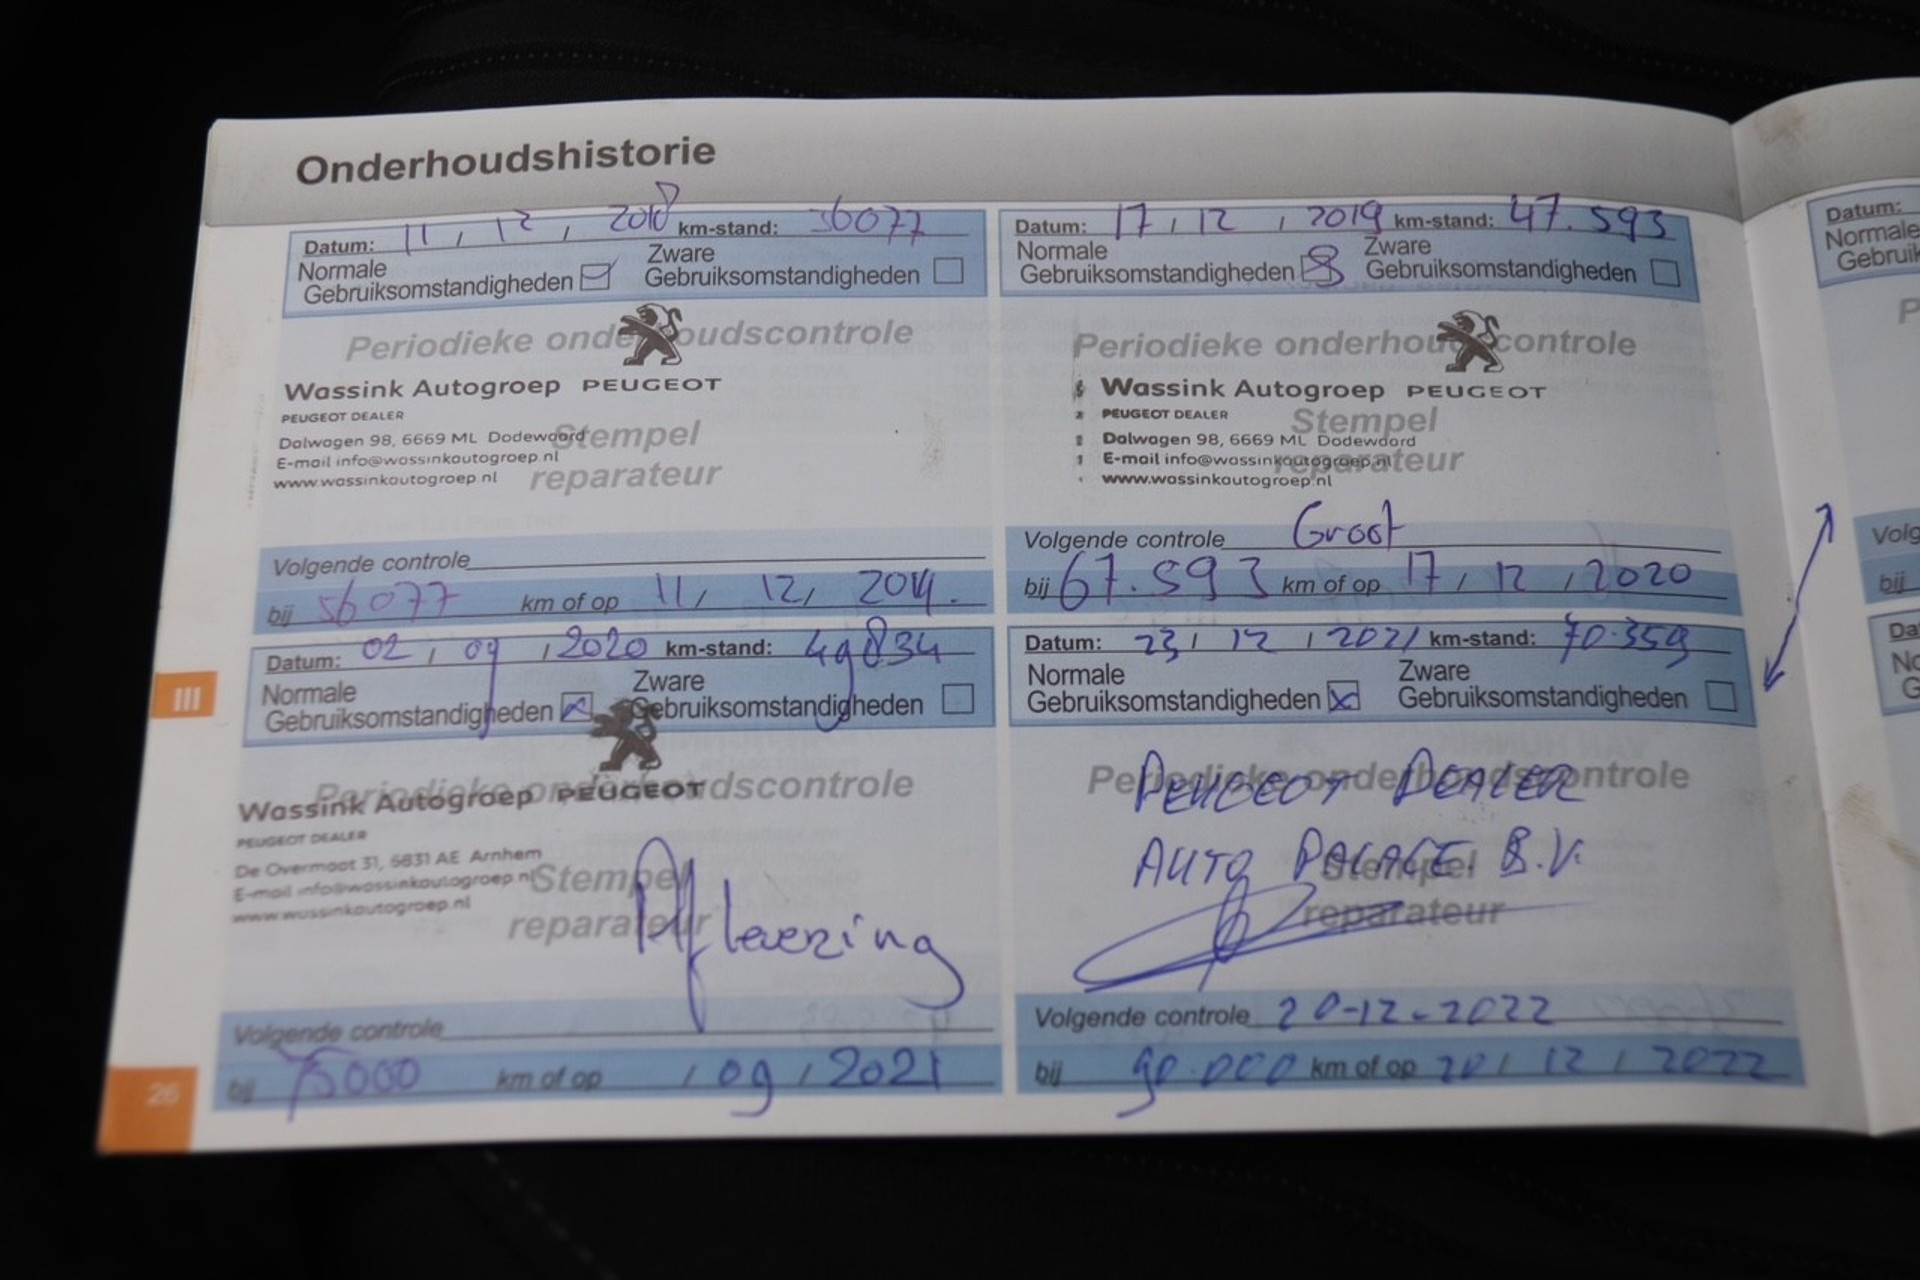 Onderhoudshistorie
Datum: 11 / 12 / 2018 km-stand: 36077
Normale Gebruiksomstandigheden
Zware Gebruiksomstandigheden
Periodieke onderhoudscontrole
Wassink Autogroep PEUGEOT
PEUGEOT DEALER
Dalwagen 98, 6669 ML Dodewaard
E-mail info@wassinkautogroep.nl
www.wassinkautogroep.nl
Stempel
reparateur
Volgende controle
bij 56077 km of op 11 / 12 / 2019.
Datum: 17 / 12 / 2019 km-stand: 47.593
Normale Gebruiksomstandigheden
Zware Gebruiksomstandigheden
Periodieke onderhoudscontrole
Wassink Autogroep PEUGEOT
PEUGEOT DEALER
Dalwagen 98, 6669 ML Dodewaard
E-mail info@wassinkautogroep.nl
www.wassinkautogroep.nl
Stempel
reparateur
Volgende controle Groot
bij 67.593 km of op 17 / 12 / 2020
Datum: 02 / 09 / 2020 km-stand: 49834
Normale Gebruiksomstandigheden
Zware Gebruiksomstandigheden
Periodieke onderhoudscontrole
Wassink Autogroep PEUGEOT
PEUGEOT DEALER
De Overmaat 31, 6831 AE Arnhem
E-mail info@wassinkautogroep.nl
www.wassinkautogroep.nl
Stempel
reparateur
Aflevering
Volgende controle
bij 75000 km of op / 09 / 2021
Datum: 23 / 12 / 2021 km-stand: 70.359
Normale Gebruiksomstandigheden
Zware Gebruiksomstandigheden
Periodieke onderhoudscontrole
PEUGEOT DEALER
AUTO PALACE B.V.
Stempel
reparateur
Volgende controle 20-12-2022
bij 90.000 km of op 20 / 12 / 2022
III
26
Datum:
Normale